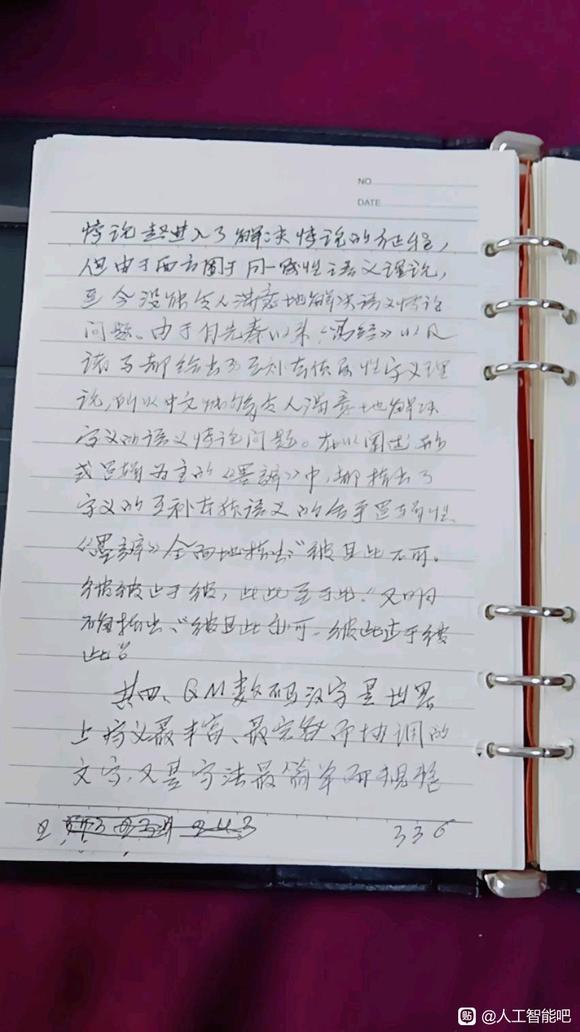 NO
DATE
悖论起进入了解决悖论的征程，
但由于西方囿于同一质性语义理论，
至今没能令人满意地解决语义悖论
问题。由于自先秦以来《易经》以及
诸子都给出了互补在体系性字义理
论，所以中文能够令人满意地解决
字义的语义悖论问题。在以阐述形
式逻辑为主的《墨辩》中，都指出了
字义的互补在语义的合乎逻辑性
《墨辩》全面地指出："彼且此不可。
彼彼止于彼，此此至于此。"又明
确指出、"彼且此亦可、彼此止于彼
此"。
其四、QM数码汉字是世界
上病义最丰富、最完善而协调的
文字，又是字法最简单而规范
2
336
@人工智能吧